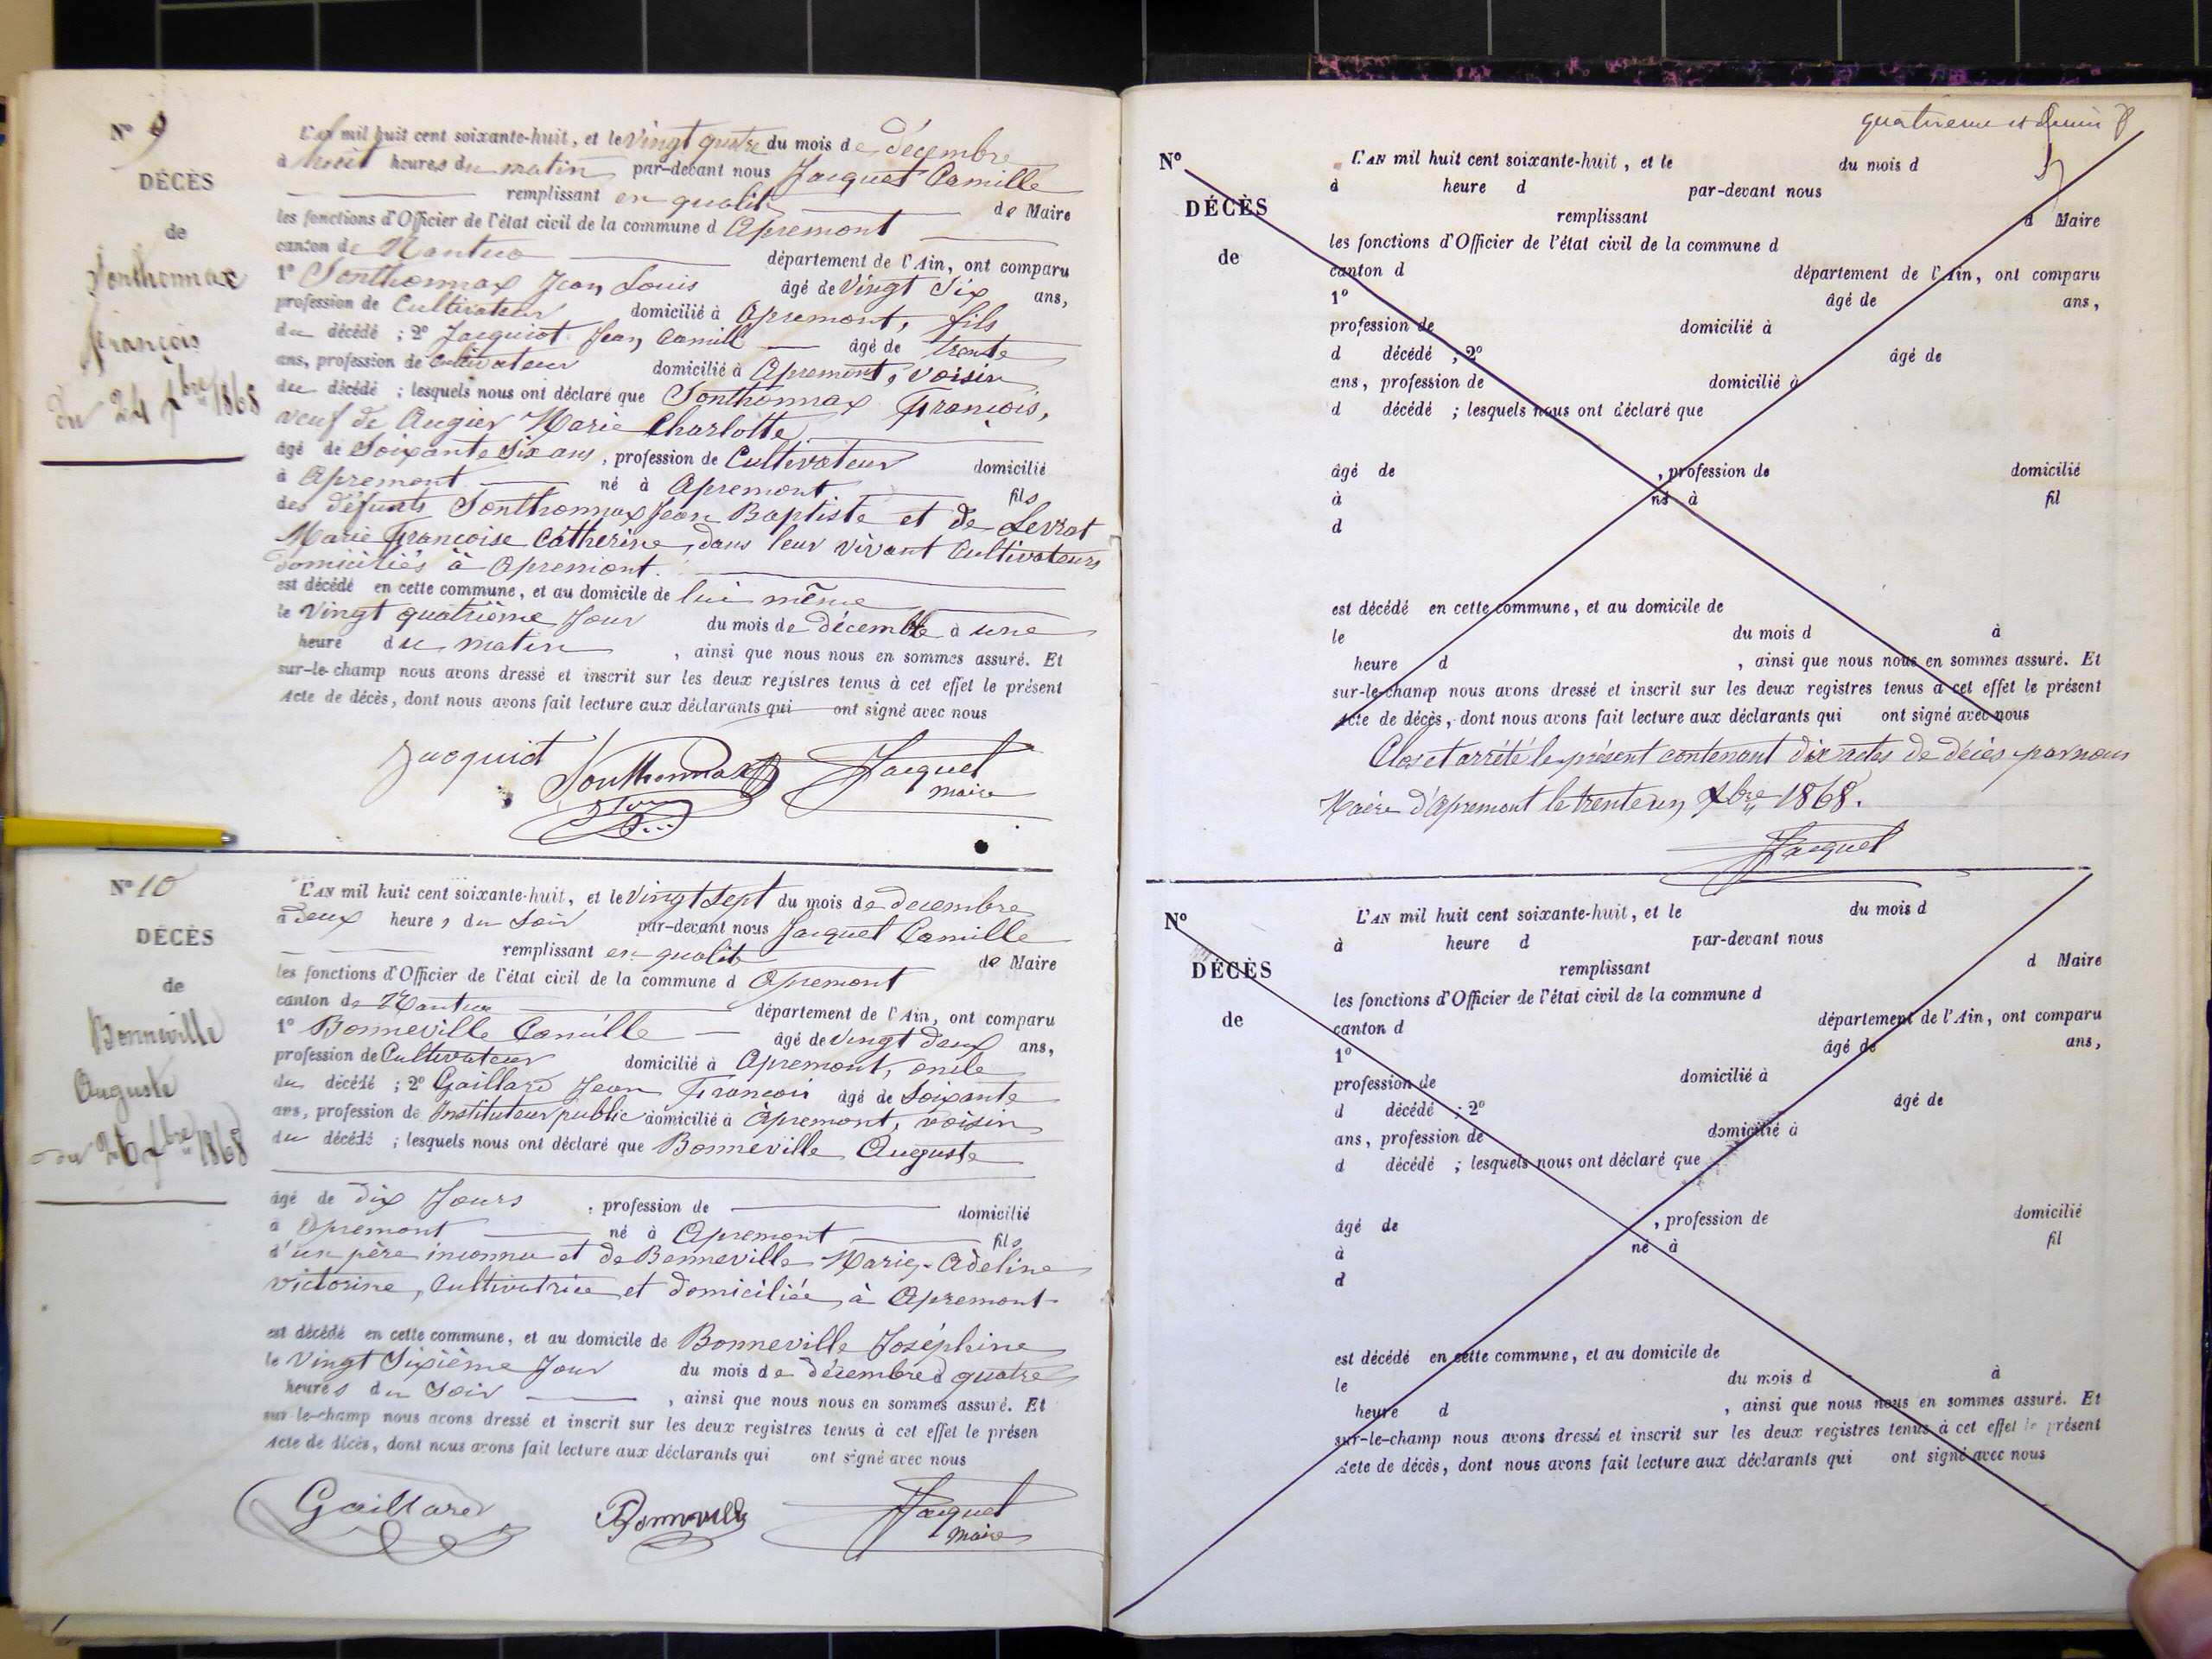 N° 9
DÉCÈS
de
Sonthonnax
François
du 24 Xbre 1868
L'AN mil huit cent soixante-huit, et le Vingt quatre du mois de décembre
à huit heures du matin par-devant nous Jacquet Camille
remplissant en qualité de Maire
les fonctions d'Officier de l'état civil de la commune d Apremont
canton de Nantua département de l'Ain, ont comparu
1° Sonthonnax Jean Louis âgé de Vingt Six ans,
profession de Cultivateur domicilié à Apremont, fils
du décédé ; 2° Jacquiot Jean Camill âgé de trente
ans, profession de Cultivateur domicilié à Apremont, voisin
du décédé ; lesquels nous ont déclaré que Sonthonnax François,
veuf de Augier Marie Charlotte
âgé de Soixante Six ans, profession de Cultivateur domicilié
à Apremont né à Apremont fils
des défunts Sonthonnax Jean Baptiste et de Levrat
Marie Françoise Catherine, dans leur vivant Cultivateurs
domiciliés à Apremont.
est décédé en cette commune, et au domicile de lui même
le Vingt quatrième Jour du mois de décembre à une
heure du matin, ainsi que nous nous en sommes assuré. Et
sur-le-champ nous avons dressé et inscrit sur les deux registres tenus à cet effet le présent
Acte de décès, dont nous avons fait lecture aux déclarants qui ont signé avec nous
Jacquiot Sonthonnax Jacquet
Maire
N° 10
DÉCÈS
de
Bonneville
Auguste
du 26 Xbre 1868
L'AN mil huit cent soixante-huit, et le Vingt Sept du mois de decembre
à Deux heures du Soir par-devant nous Jacquet Camille
remplissant en qualité de Maire
les fonctions d'Officier de l'état civil de la commune d Apremont
canton de Nantua département de l'Ain, ont comparu
1° Bonneville Camille âgé de Vingt deux ans,
profession de Cultivateur domicilié à Apremont, oncle
du décédé ; 2° Gaillard Jean François âgé de Soixante
ans, profession de Instituteur public domicilié à Apremont, voisin
du décédé ; lesquels nous ont déclaré que Bonneville Auguste
âgé de dix Jours , profession de domicilié
à Apremont né à Apremont fils
d'un père inconnu et de Bonneville Marie-Adeline
Victorine, Cultivatrice et domiciliée à Apremont
est décédé en cette commune, et au domicile de Bonneville Joséphine
le Vingt Sixième Jour du mois de décembre à quatre
heures du Soir , ainsi que nous nous en sommes assuré. Et
sur-le-champ nous avons dressé et inscrit sur les deux registres tenus à cet effet le présen
Acte de décès, dont nous avons fait lecture aux déclarants qui ont signé avec nous
Gaillard Bonneville Jacquet
Maire
quatrieme et
N°
DÉCÈS
de
L'AN mil huit cent soixante-huit, et le du mois d
à heure d par-devant nous
remplissant d Maire
les fonctions d'Officier de l'état civil de la commune d
canton d département de l'Ain, ont comparu
1° âgé de ans,
profession de domicilié à
d décédé ; 2° âgé de
ans, profession de domicilié à
d décédé ; lesquels nous ont déclaré que
âgé de , profession de domicilié
à né à fil
d
est décédé en cette commune, et au domicile de
le du mois d à
heure d , ainsi que nous nous en sommes assuré. Et
sur-le-champ nous avons dressé et inscrit sur les deux registres tenus à cet effet le présent
Acte de décès, dont nous avons fait lecture aux déclarants qui ont signé avec nous
Clos et arrêté le présent contenant dix actes de décès par nous
Maire d'Apremont le trente un Xbre 1868.
Jacquet
N°
DÉCÈS
de
L'AN mil huit cent soixante-huit, et le du mois d
à heure d par-devant nous
remplissant d Maire
les fonctions d'Officier de l'état civil de la commune d
canton d département de l'Ain, ont comparu
1° âgé de ans,
profession de domicilié à
d décédé ; 2° âgé de
ans, profession de domicilié à
d décédé ; lesquels nous ont déclaré que
âgé de , profession de domicilié
à né à fil
d
est décédé en cette commune, et au domicile de
le du mois d à
heure d , ainsi que nous nous en sommes assuré. Et
sur-le-champ nous avons dressé et inscrit sur les deux registres tenus à cet effet le présent
Acte de décès, dont nous avons fait lecture aux déclarants qui ont signé avec nous